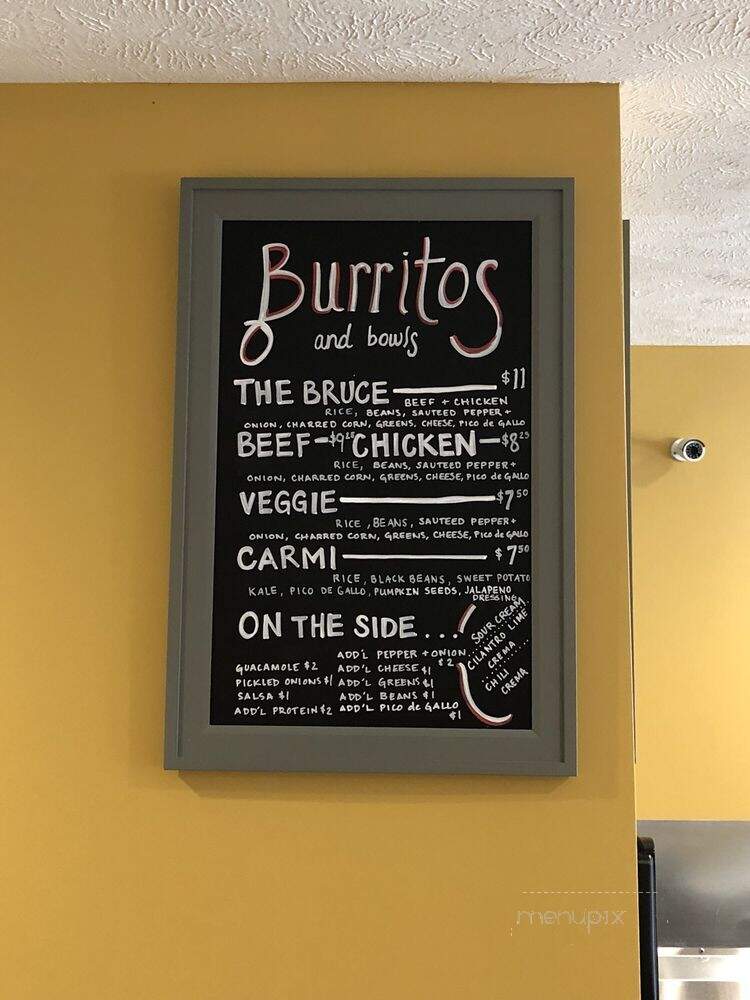 Burritos
and bowls
THE BRUCE $11
BEEF + CHICKEN
RICE, BEANS, SAUTEED PEPPER +
ONION, CHARRED CORN, GREENS, CHEESE, PICO de GALLO
BEEF - $9.25 CHICKEN - $8.25
RICE, BEANS, SAUTEED PEPPER +
ONION, CHARRED CORN, GREENS, CHEESE, PICO de GALLO
VEGGIE $7.50
RICE, BEANS, SAUTEED PEPPER +
ONION, CHARRED CORN, GREENS, CHEESE, PICO de GALLO
CARMI $7.50
RICE, BLACK BEANS, SWEET POTATO
KALE, PICO DE GALLO, PUMPKIN SEEDS, JALAPENO
DRESSING
ON THE SIDE...
GUACAMOLE $2
PICKLED ONIONS $1
SALSA $1
ADD'L PROTEIN $2
ADD'L PEPPER + ONION $2
ADD'L CHEESE $1
ADD'L GREENS $1
ADD'L BEANS $1
ADD'L PICO de GALLO $1
SOUR CREAM
CILANTRO LIME
CREMA
CHILI
CREMA
menupix